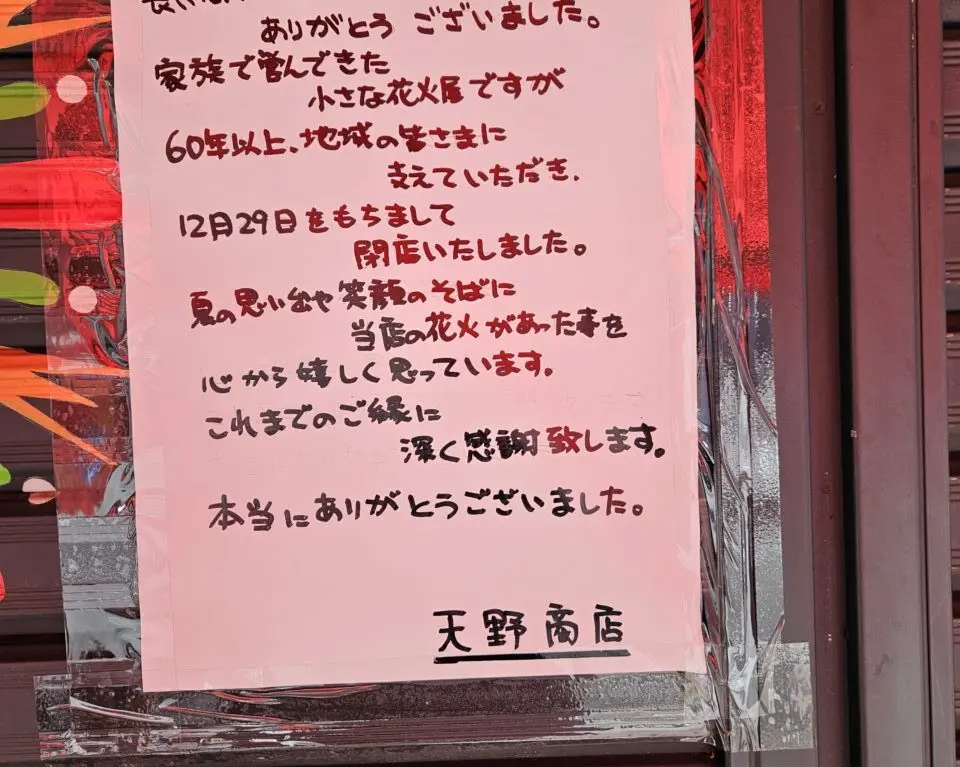 ありがとう ございました。
家族で営んできた
小さな花火屋ですが
60年以上、地域の皆さまに
支えていただき、
12月29日をもちまして
閉店いたしました。
夏の思い出や笑顔のそばに
当店の花火があった事を
心から嬉しく思っています。
これまでのご縁に
深く感謝致します。
本当にありがとうございました。
天野商店